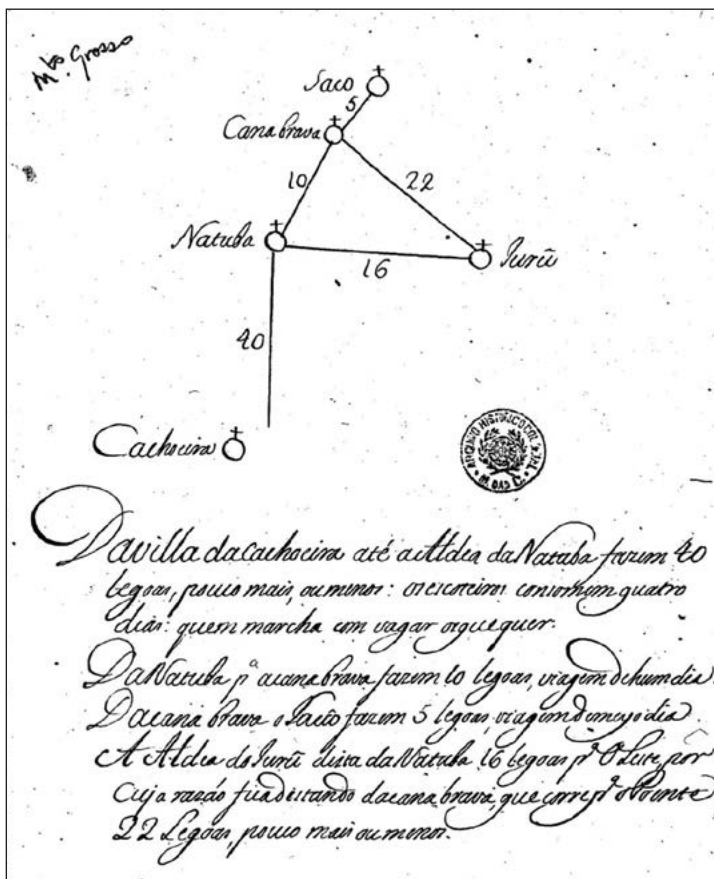 M.to Grosso
Saco
5
Canabrava
10
22
Natuba
16
Jurũ
40
Cachoeira
ARQUIVO HISTÓRICO COLONIAL
Da villa da Cachoeira até a Aldea da Natuba fazem 40
legoas, pouco mais, ou menos: os escoteiros consomem quatro
dias: quem marcha com vagar o que quer.
Da Natuba p.ª a cana brava fazem 10 legoas, viagem de hum dia.
Da cana brava o Saco fazem 5 legoas, viagem de meyo dia.
A Aldea do Jurũ dista da Natuba 16 legoas p.ª O Leste, por
cuja razão fica distando da cana brava, que corre p.ª o Poente
22 Legoas, pouco mais ou menos.